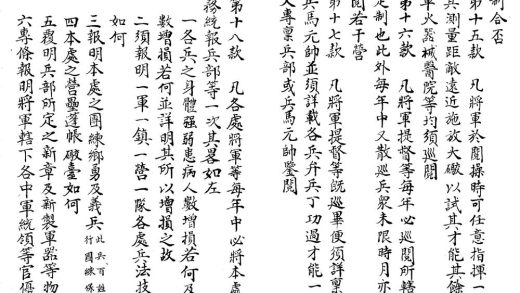 制合否
第十五款　凡將軍於閱操時可任意指揮一
兵測量距敵遠近施放大礮以試其才能其餘
車火器械醫院等均須巡閱
第十六款　凡將軍提督等每年必巡閱所轄
定制也此外每年中又散巡兵衆未限時月亦
閱若干營
第十七款　凡將軍提督等旣巡畢便須詳稟
兵馬元帥並須詳載各兵弁兵丁功過才能一
文專稟兵部或兵馬元帥鑒閱
第十八款　凡各處將軍等每年中必將本處
務統報兵部等一次其畧如左
一各兵之身體强弱患病人數增損若何及
數增損若何並詳明其所以增損之故
二須報明一軍一鎮一營一隊各處兵法技
如何
三報明本處之團練鄉勇及義兵
四本處之營壘蓬帳礮臺如何
五覆明兵部所定之新章及新製軍器等物
六專條報明將軍轄下各中軍統領等官